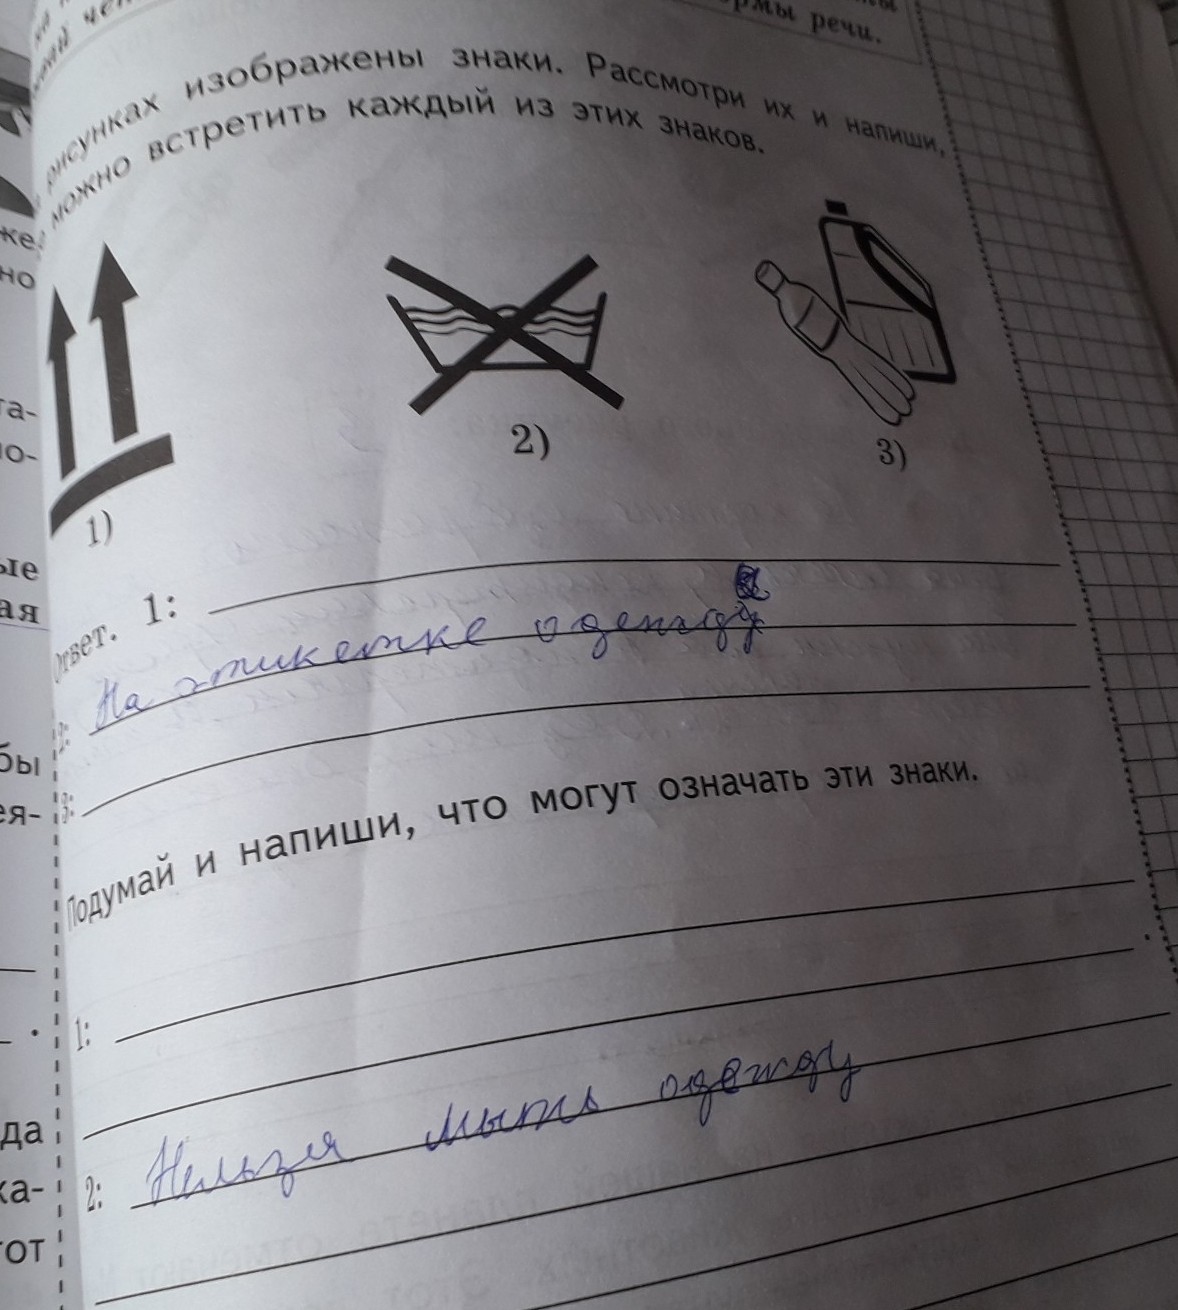 рмы речи.
рисунках изображены знаки. Рассмотри их и напиши,
можно встретить каждый из этих знаков.
же,
но
та-
ло-
ые
ая
1)
2)
3)
Ответ. 1:
2: На этикетке одежды
3:
бы
ея-
Подумай и напиши, что могут означать эти знаки.
1:
2: Нельзя мыть одежду
да
ка-
тот